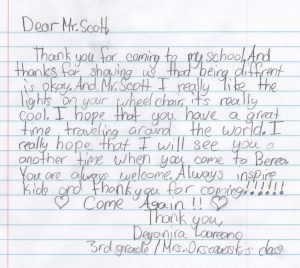 Dear Mr. Scott,
Thank you for coming to my school. And
thanks for showing us that being diffrent
is okay. And Mr. Scott I really like the
lights on your wheel chair, it's really
cool. I hope that you have a great
time traveling around the world. I
really hope that I will see you a
another time when you come to Berea
You are always welcome. Always inspire
kids and thank you for coming!!!!!!
♡ Come Again!! ♡
Thank you
Deyanira Laureano
3rd grade / Mrs. Orscewski's class